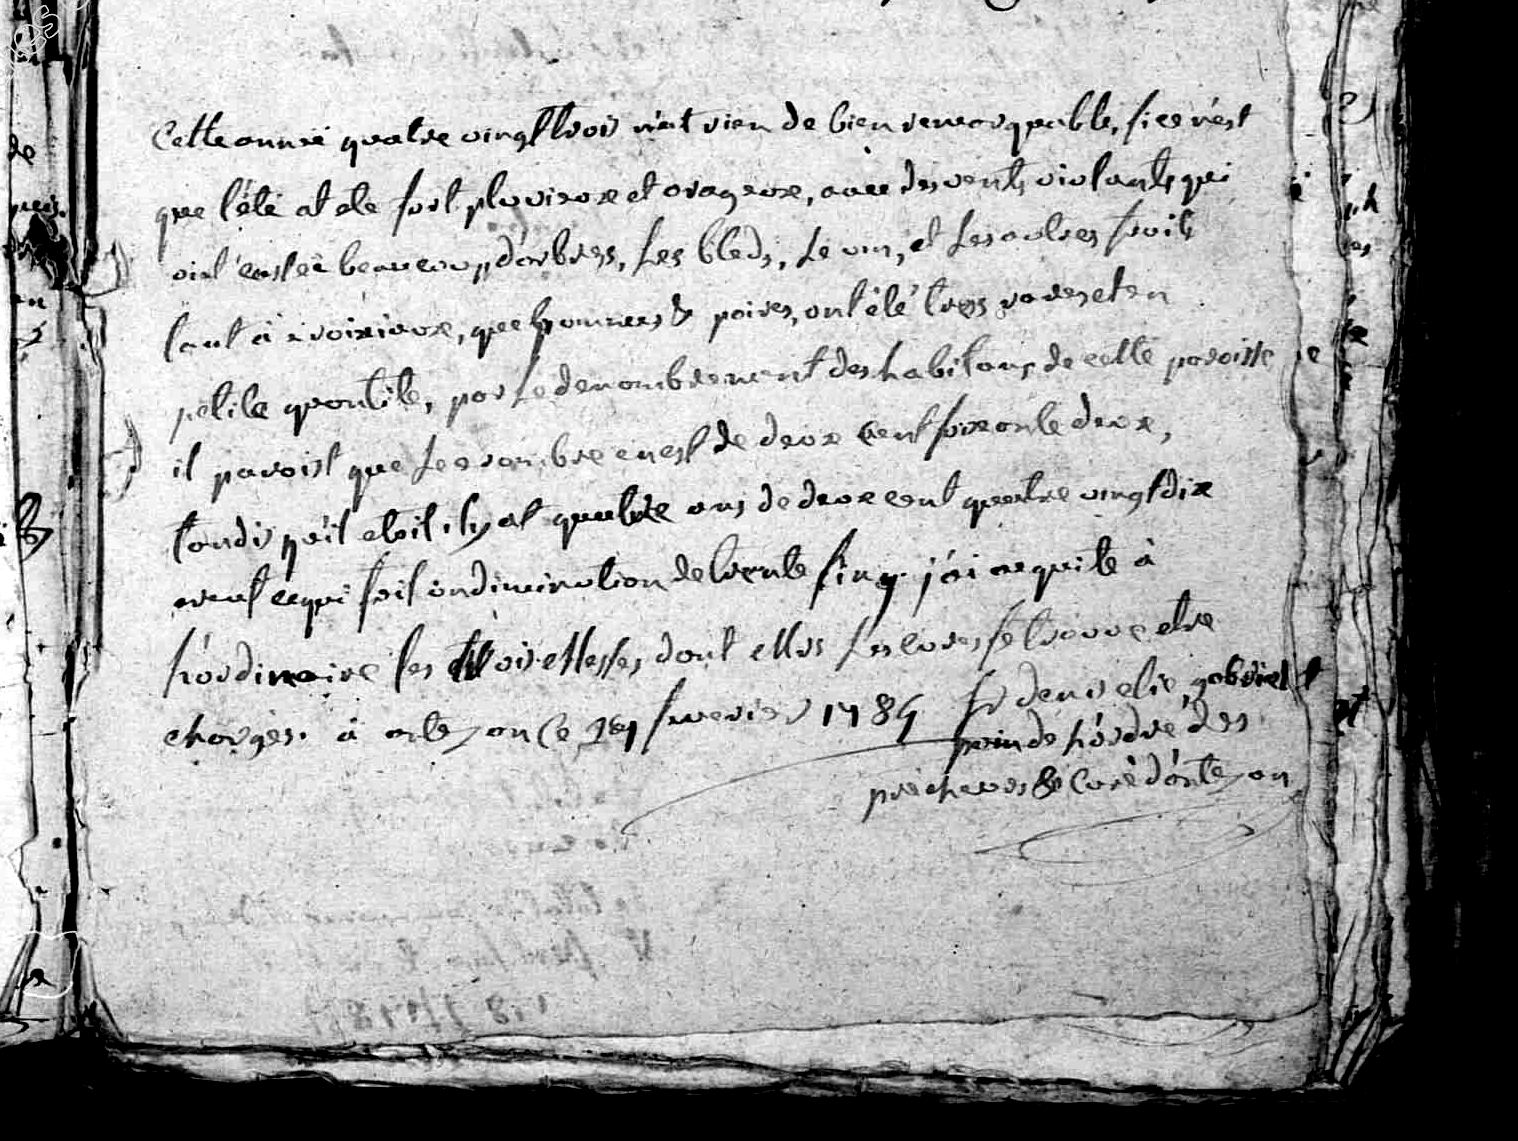 Cette anneé quatre vingt trois n'at rien de bien remarquable, si ce n'est
que l'été at ete fort pluvieux et orageux, avec des vents violants qui
ont beaucoup d'arbres, les bleds, le vin, et les autres fruits
tant à que pommes & poires, ont été tres rares et en
petite quantite, par le denombrement des habitans de cette paroisse
il paroist que le nombre en est de deux cent soixante deux,
tandis qu'il etoit il y at quatre ans de deux cent quatre vingt dix
neuf ce qui fait un diminution de trente j'ai acquité à
l'ordinaire les trois Messes, dont elles les cures se trouve etre
chargés. à artezon ce janvier 1784 fr denis elie gabriel
de l'ordre des
précheurs & Curé d'artezon